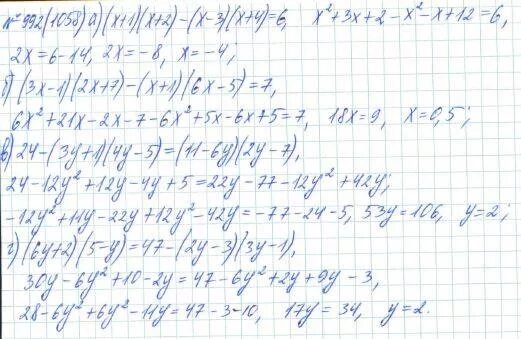 № 992(1058) а) (x+1)(x+2)-(x-3)(x+4)=6, x²+3x+2-x²-x+12=6,
2x=6-14, 2x=-8, x=-4;
б) (3x-1)(2x+7)-(x+1)(6x-5)=7,
6x²+21x-2x-7-6x²+5x-6x+5=7, 18x=9, x=0,5;
в) 24-(3y+1)(4y-5)=(11-6y)(2y-7),
24-12y²+12y-4y+5=22y-77-12y²+42y;
-12y²+11y-22y+12y²-42y=-77-24-5, 53y=106, y=2;
г) (6y+2)(5-y)=47-(2y-3)(3y-1),
30y-6y²+10-2y=47-6y²+2y+9y-3,
28-6y²+6y²-11y=47-3-10, 17y=34, y=2.